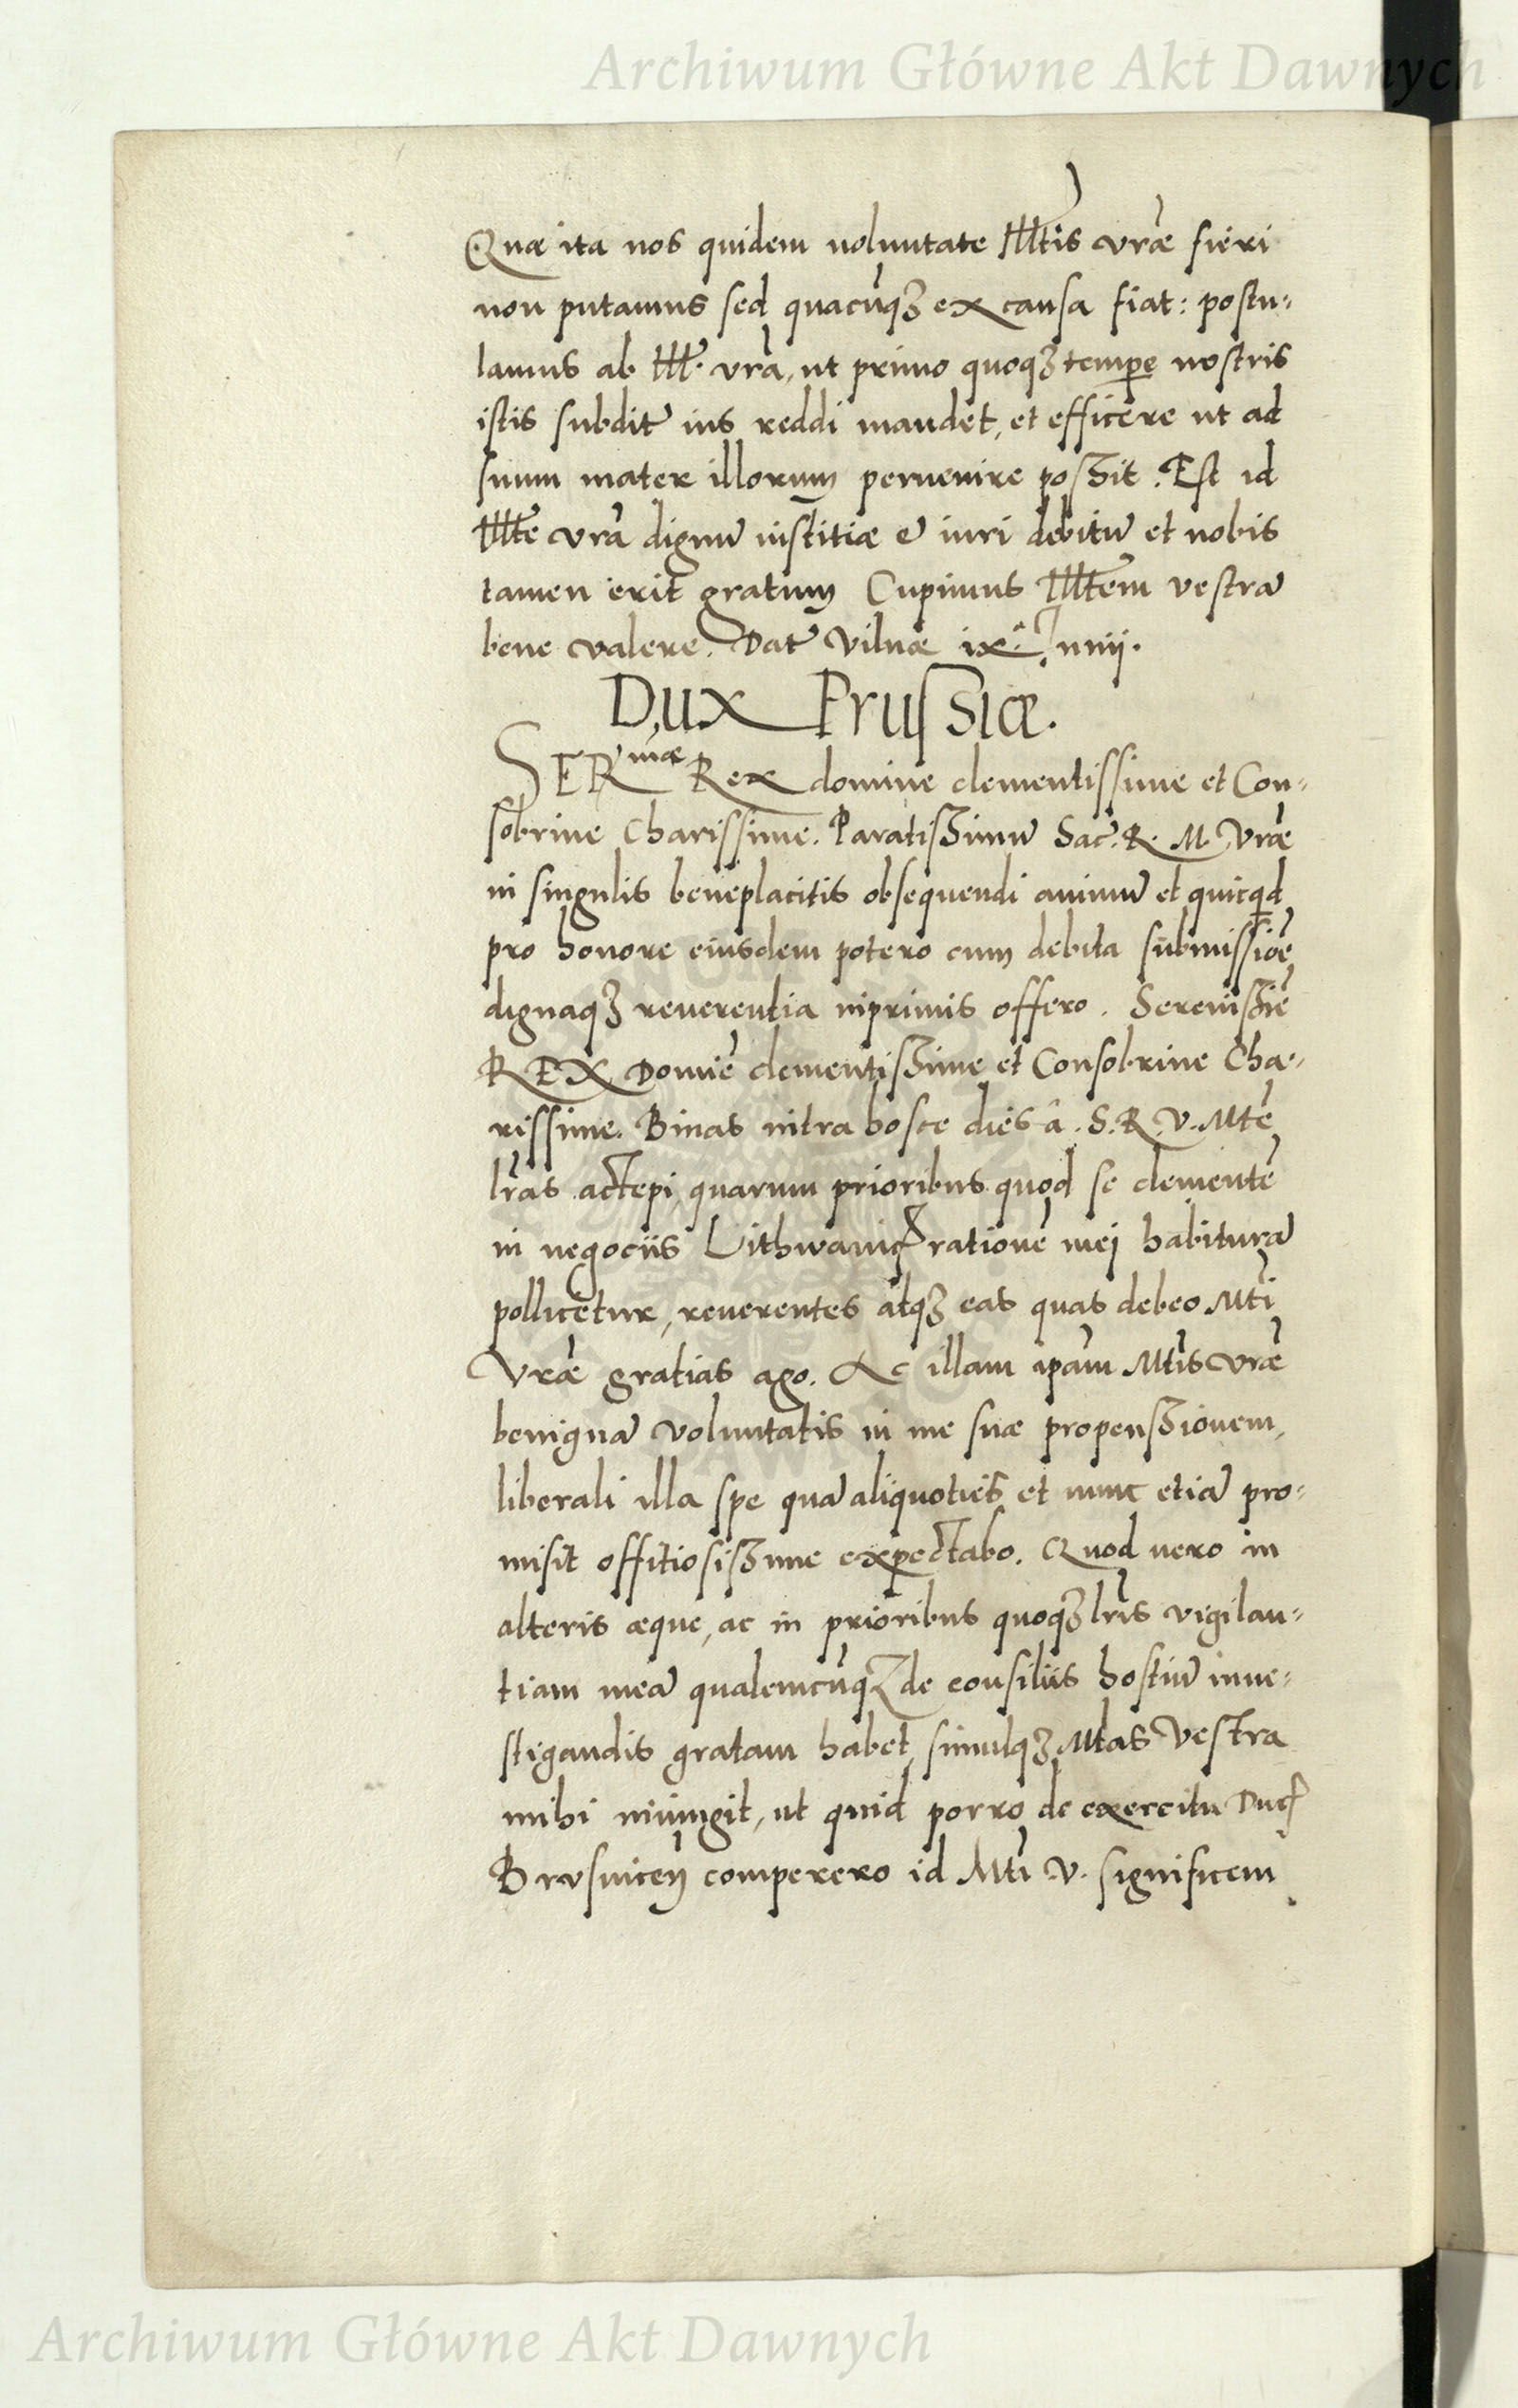 Archiwum Główne Akt Dawnych
Quæ ita nos quidem uoluntate Illtis vræ fieri
non putamus sed quacūqȝ ex causa fiat: postu=
lamus ab Ill. vra, ut primo quoqȝ tempe nostris
istis subdit ius reddi mandet, et efficere ut ad
suum mater illorum peruenire possit. Est id
Illte vra dignū iustitiæ & iuri debitū et nobis
tamen erit gratum Cupimus Illtem vestrā
bene valere. Dat Vilnæ ix.
Dux Prussiæ.
SERmæ Rex domine clementissime et Con=
sobrine Charissime. Paratissimū Sac. R. M. Vræ
in singulis beneplacitis obsequendi animū et quicqd
pro honore eiusdem potero cum debita submissiōe
dignaqȝ reuerentia inprimis offero. Serenissie
REX Domīe clementissime et Consobrine Cha=
rissime. Binas intra hosce dies â. S. R. V. Mte
lr̃as accepi, quarum prioribus quod se clementē
in negociis Lithwanic rationē mei habiturā
pollicetur, reuerentes atqȝ eas quas debeo Mti
Vræ gratias ago. Ac illam ipam Mtis vræ
benignā voluntatis in me suæ propenssionem,
liberali illa spe quā aliquoties et nunc etiā pro=
misit offitiosissime expectabo. Quod uero in
alteris æque, ac in prioribus quoqȝ lr̃is vigilan=
tiam meā qualemcūqȝ de consiliis hostiū inue=
stigandis gratam habet, simulqȝ Mtas Vestra
mihi iniungit, ut quid porro de exercitu Duc
Brusuicen comperero id Mti V. significem
Archiwum Główne Akt Dawnych